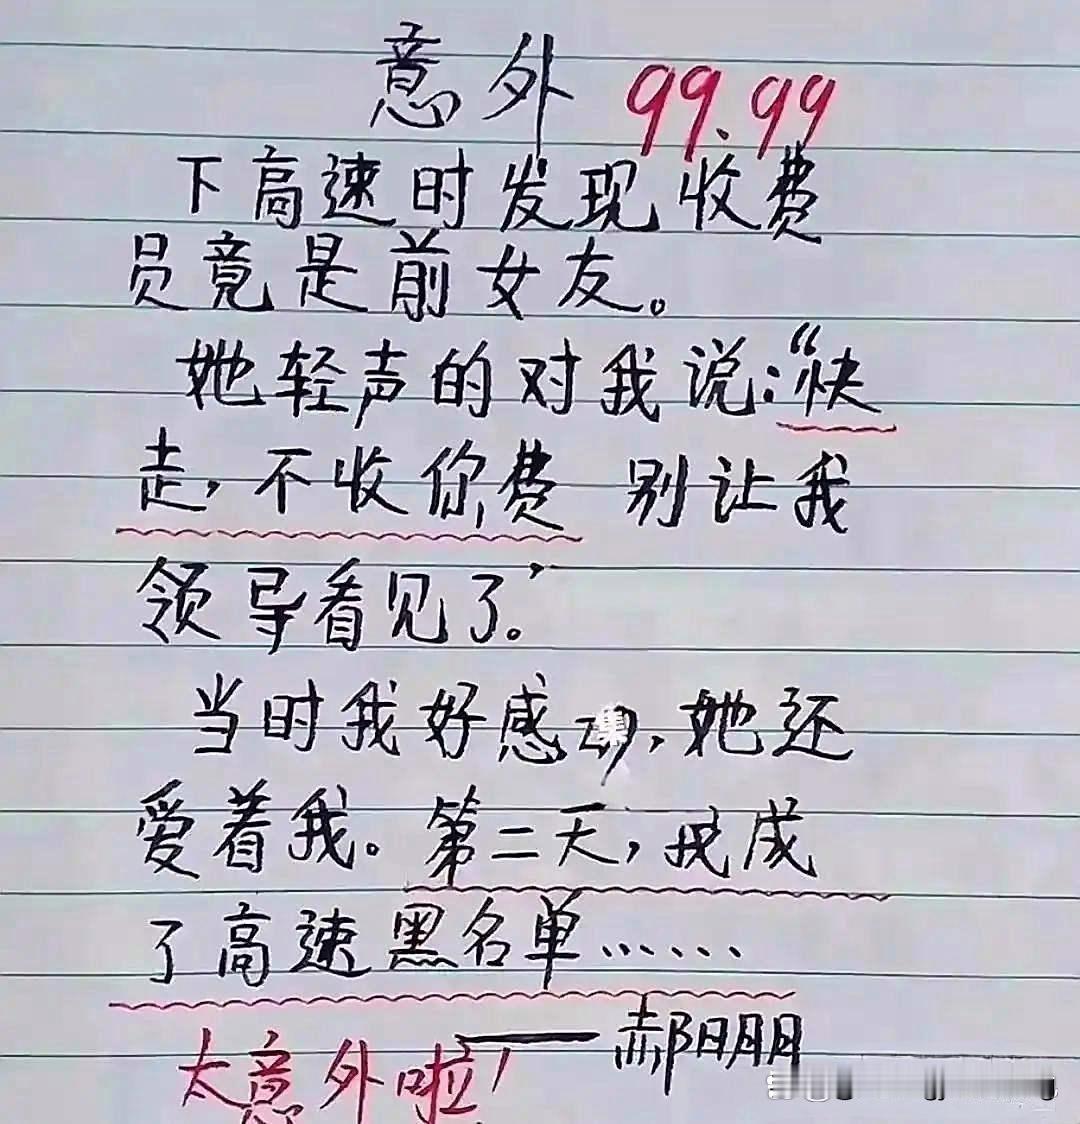 意外 99.99
下高速时发现收费
员竟是前女友。
她轻声的对我说:“快
走,不收你费 别让我
领导看见了。”
当时我好感动,她还
爱着我。第二天,我成
了高速黑名单……
——郝朋
太意外啦!